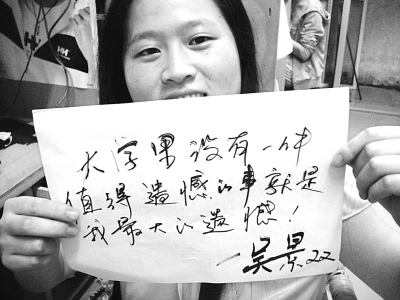 大学里没有一件
值得遺憾的事就是
我最大的遺憾！
—吴景双